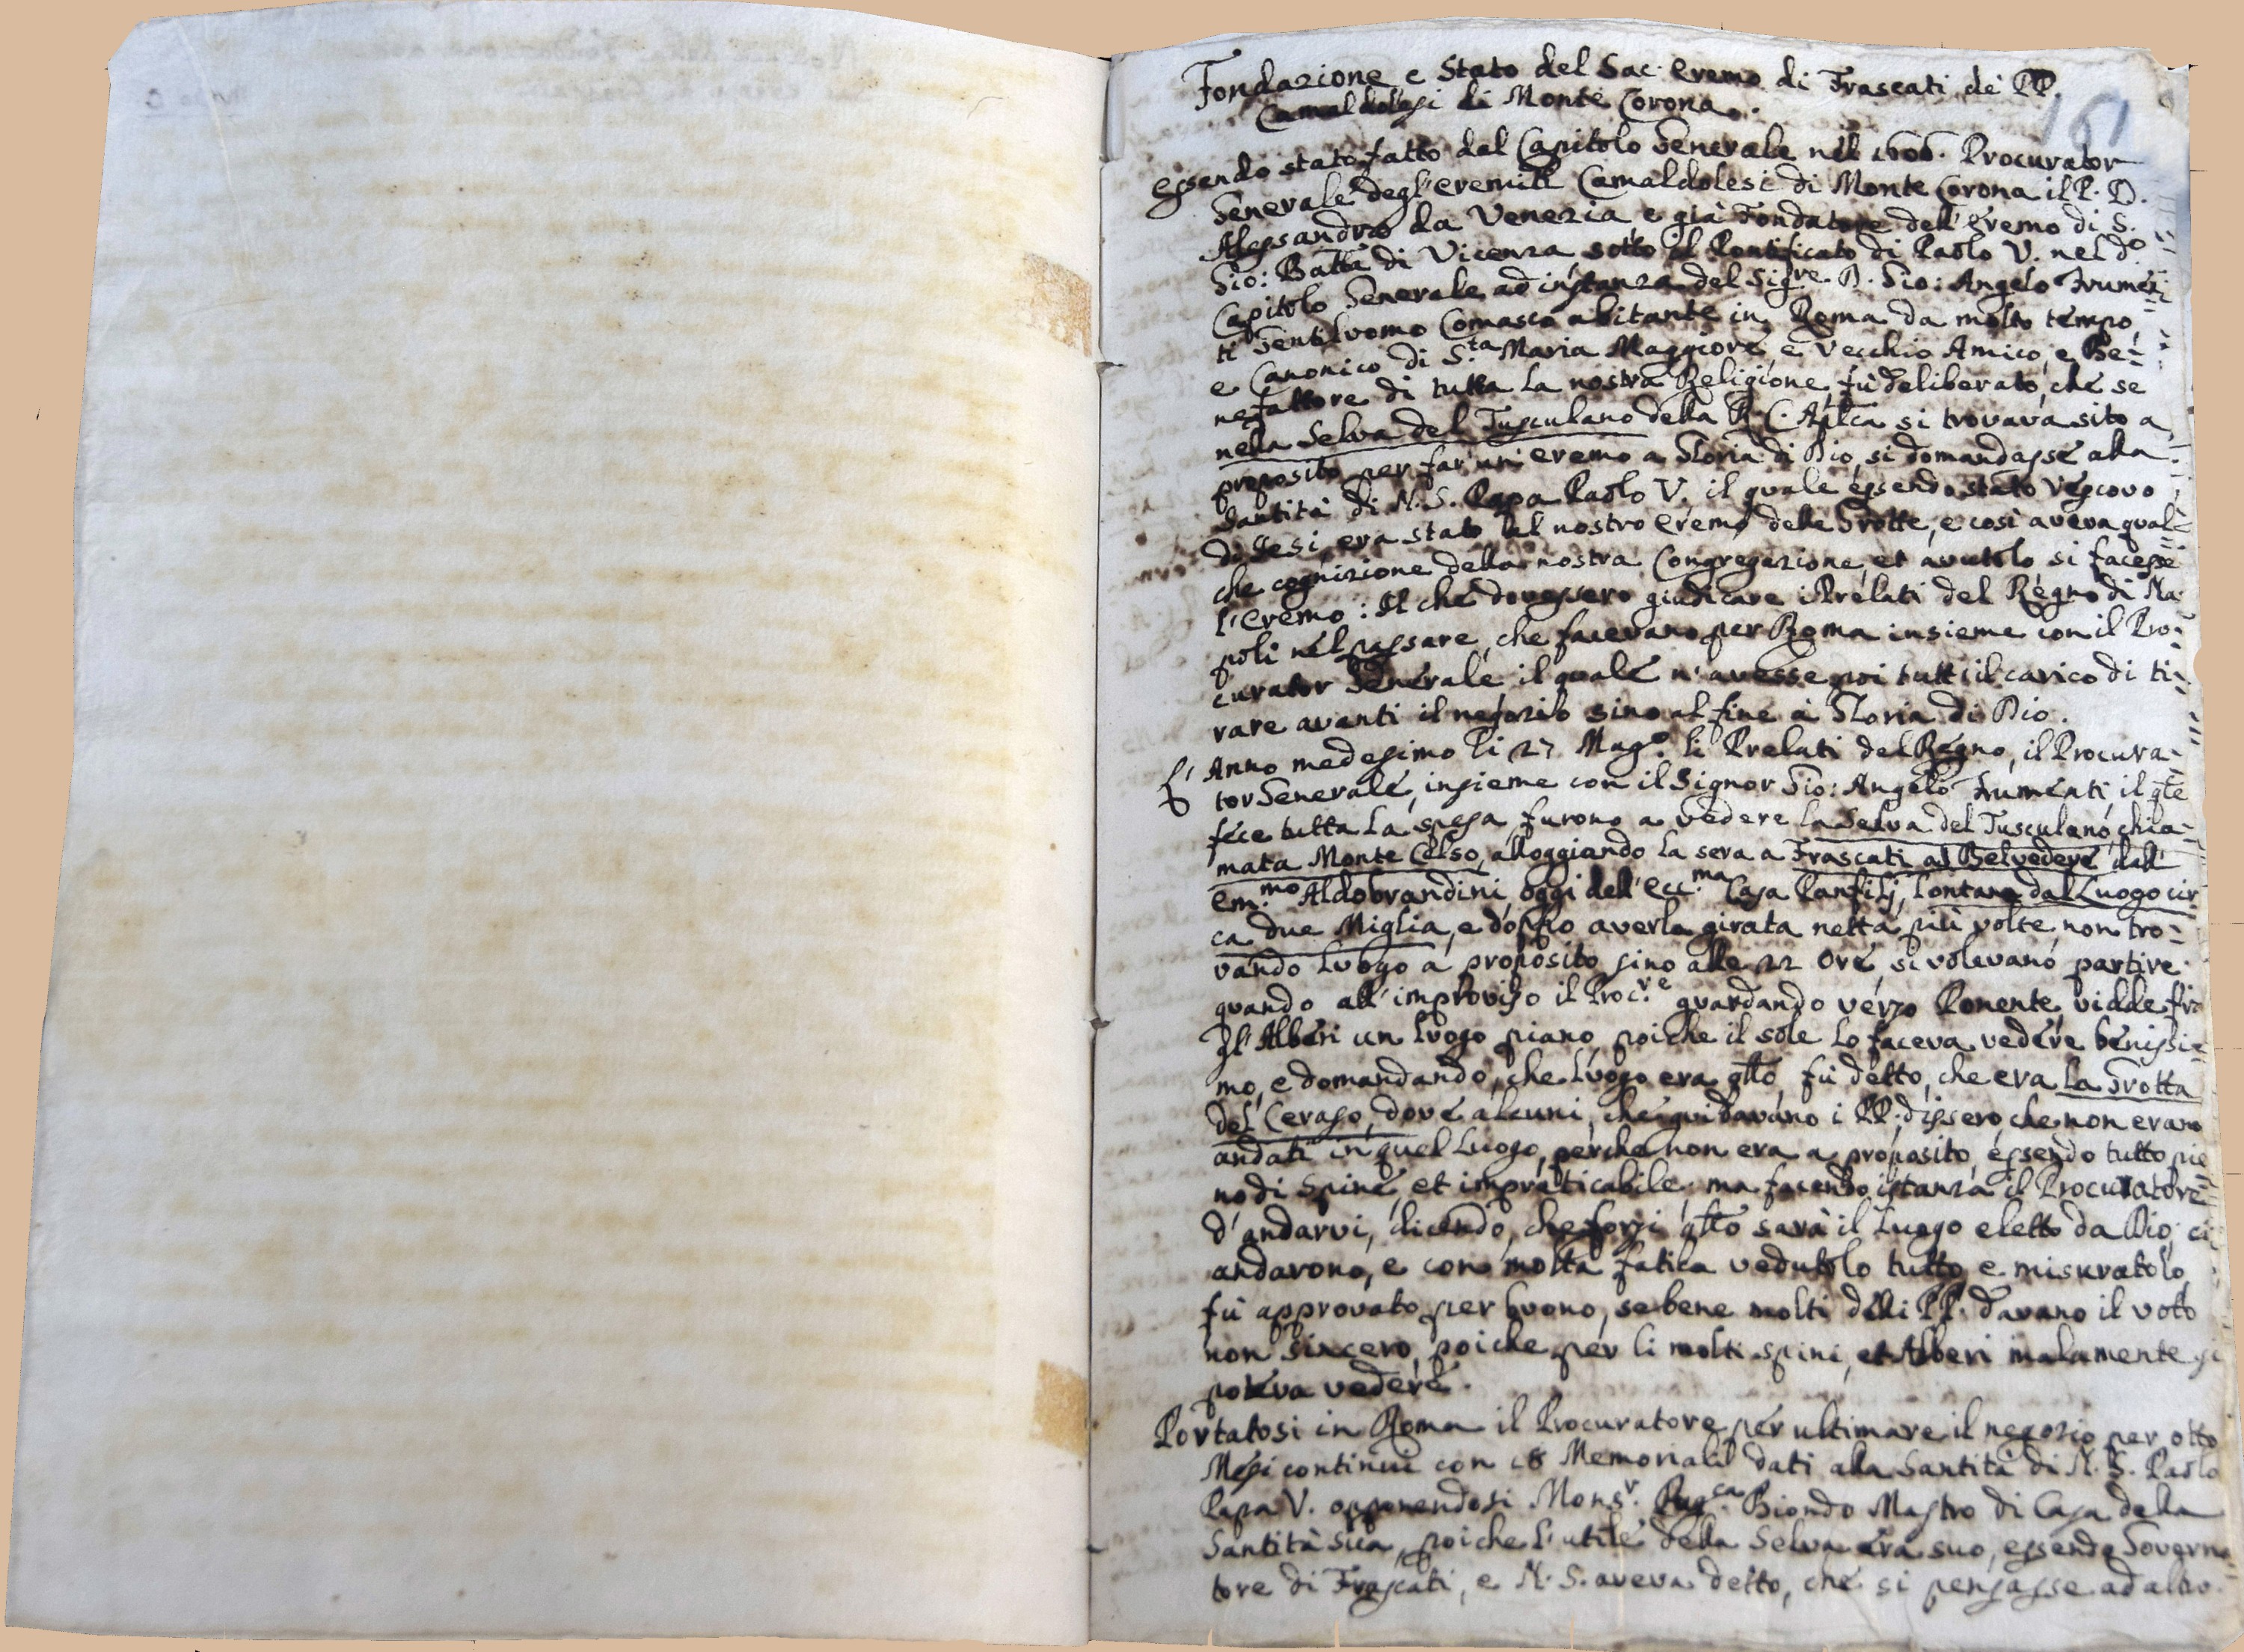 Fondazione e Stato del Sac. Eremo di Frascati de' PP.
Camaldolesi di Monte Corona.
161
Essendo stato fatto dal Capitolo Generale nel 1606. Procurator
Generale degl'Eremiti Camaldolesi di Monte Corona il P. D.
Alessandro da Venezia e già Fondatore dell'Eremo di S.
Gio: Batta di Vicenza sotto il Pontificato di Paolo V. nel do
Capitolo Generale ad instanza del Sigre D. Gio: Angelo Frumen=
ti Gentiluomo Comasco abitante in Roma da molto tempo,
e Canonico di S.ta Maria Maggiore, e vecchio Amico, e Be=
nefattore di tutta la nostra Religione, fù deliberato, che se
nella Selva del Tusculano della R. C. Aplca si trovava sito a
proposito per far un'Eremo a Gloria di Dio, si domandasse alla
Santità di N. S. Papa Paolo V. il quale essendo stato Vescovo
di Jesi, era stato al nostro Eremo delle Grotte, e così aveva qual=
che cognizione della nostra Congregazione, et avutolo si facesse
l'Eremo: Il che dovessero giudicare i Prelati del Regno di Na=
poli nel passare, che facevano per Roma insieme con il Pro=
curator Generale il quale n'avesse poi tutt'il carico di ti=
rare avanti il negozio sino al fine a Gloria di Dio.
L'Anno medesimo li 27 Mago. li Prelati del Regno, il Procura=
tor Generale, insieme con il Signor Gio: Angelo Frumenti, il qle
fece tutta la spesa, furono a vedere la Selva del Tusculano chia=
mata Monte Celso, alloggiando la sera a Frascati al Belvedere dell'
Em.mo Aldobrandini, oggi dell'Ecc.ma Casa Panfilj, lontana dal Luogo cir
ca due Miglia, e doppo averla girata netta più volte, non tro=
vando luogo a proposito sino alle 22 ore, si volevano partire
quando all'improviso il Proc.re guardando verso Ponente, vidde fra
gl'Alberi un luogo piano, poiche il sole lo faceva vedere benissi=
mo, e domandando, che luogo era qllo, fù detto, che era la Grotta
del Ceraso, dove alcuni, che guidavano i PP. dissero, che non erano
andati in quel Luogo, perche non era a proposito, essendo tutto pie=
no di Spine et impraticabile; ma facendo istanza il Procuratore
d'andarvi, dicendo, che forsi qllo sarà il Luogo eletto da Dio; ci
andarono, e con molta fatica vedutolo tutto e misuratolo,
fù approvato per buono, sebene molti delli PP. davano il voto
non sincero, poiche per li molti spini, et Alberi malamente si
poteva vedere.
Portatosi in Roma il Procuratore per ultimare il negozio per otto
Mesi continui con 18 Memoriali dati alla Santità di N. S. Paolo
Papa V. opponendosi Monsr. Biondo Mastro di Casa della
Santità Sua, poiche l'utile della Selva era suo, essendo Governa=
tore di Frascati, e N. S. aveva detto, che si pensasse ad altro